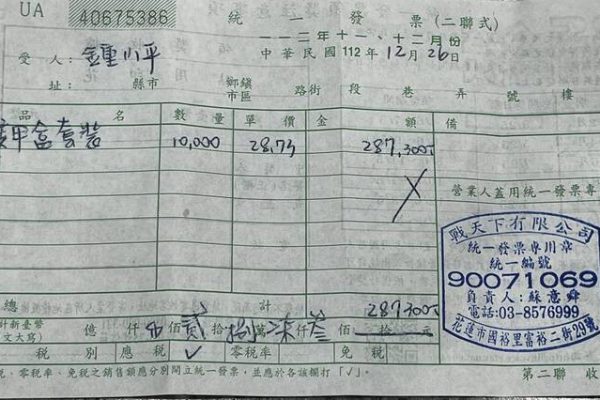 UA 40675386
統一發票(二聯式)
一一二年十一、十二月份
中華民國112年12月26日
受 人:鍾小平
址: 縣市 鄉鎮市區 路街 段 巷 弄 號 樓
品 名 數量 單價 金 額 備
甲盒套裝 10,000 28.73 287,300
營業人蓋用統一發票專
戰天下有限公司
統一發票專用章
統一編號
90071069
負責人:蘇意舜
電話:03-8576999
花蓮市國裕里富裕二街29號
總 計 287300
新臺幣
文大寫) 億 仟 佰 貳 拾 捌 萬 柒 仟 叁 佰 拾 元
稅 別 應 稅 ✓ 零稅率 免 稅
、零稅率、免稅之銷售額應分別開立統一發票,並應於各該欄打「✓」。
第二聯